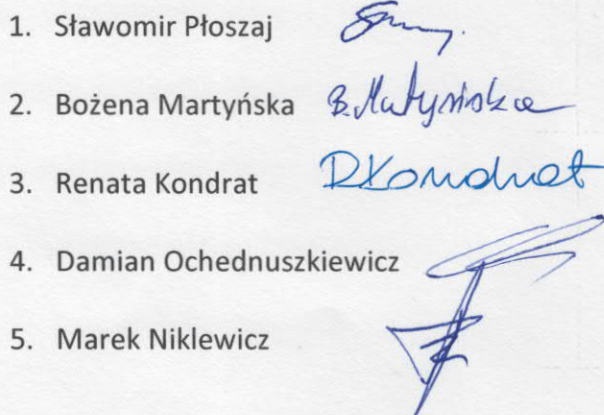 1. Sławomir Płoszaj
2. Bożena Martyńska B. Martyńska
3. Renata Kondrat RKondrat
4. Damian Ochednuszkiewicz
5. Marek Niklewicz